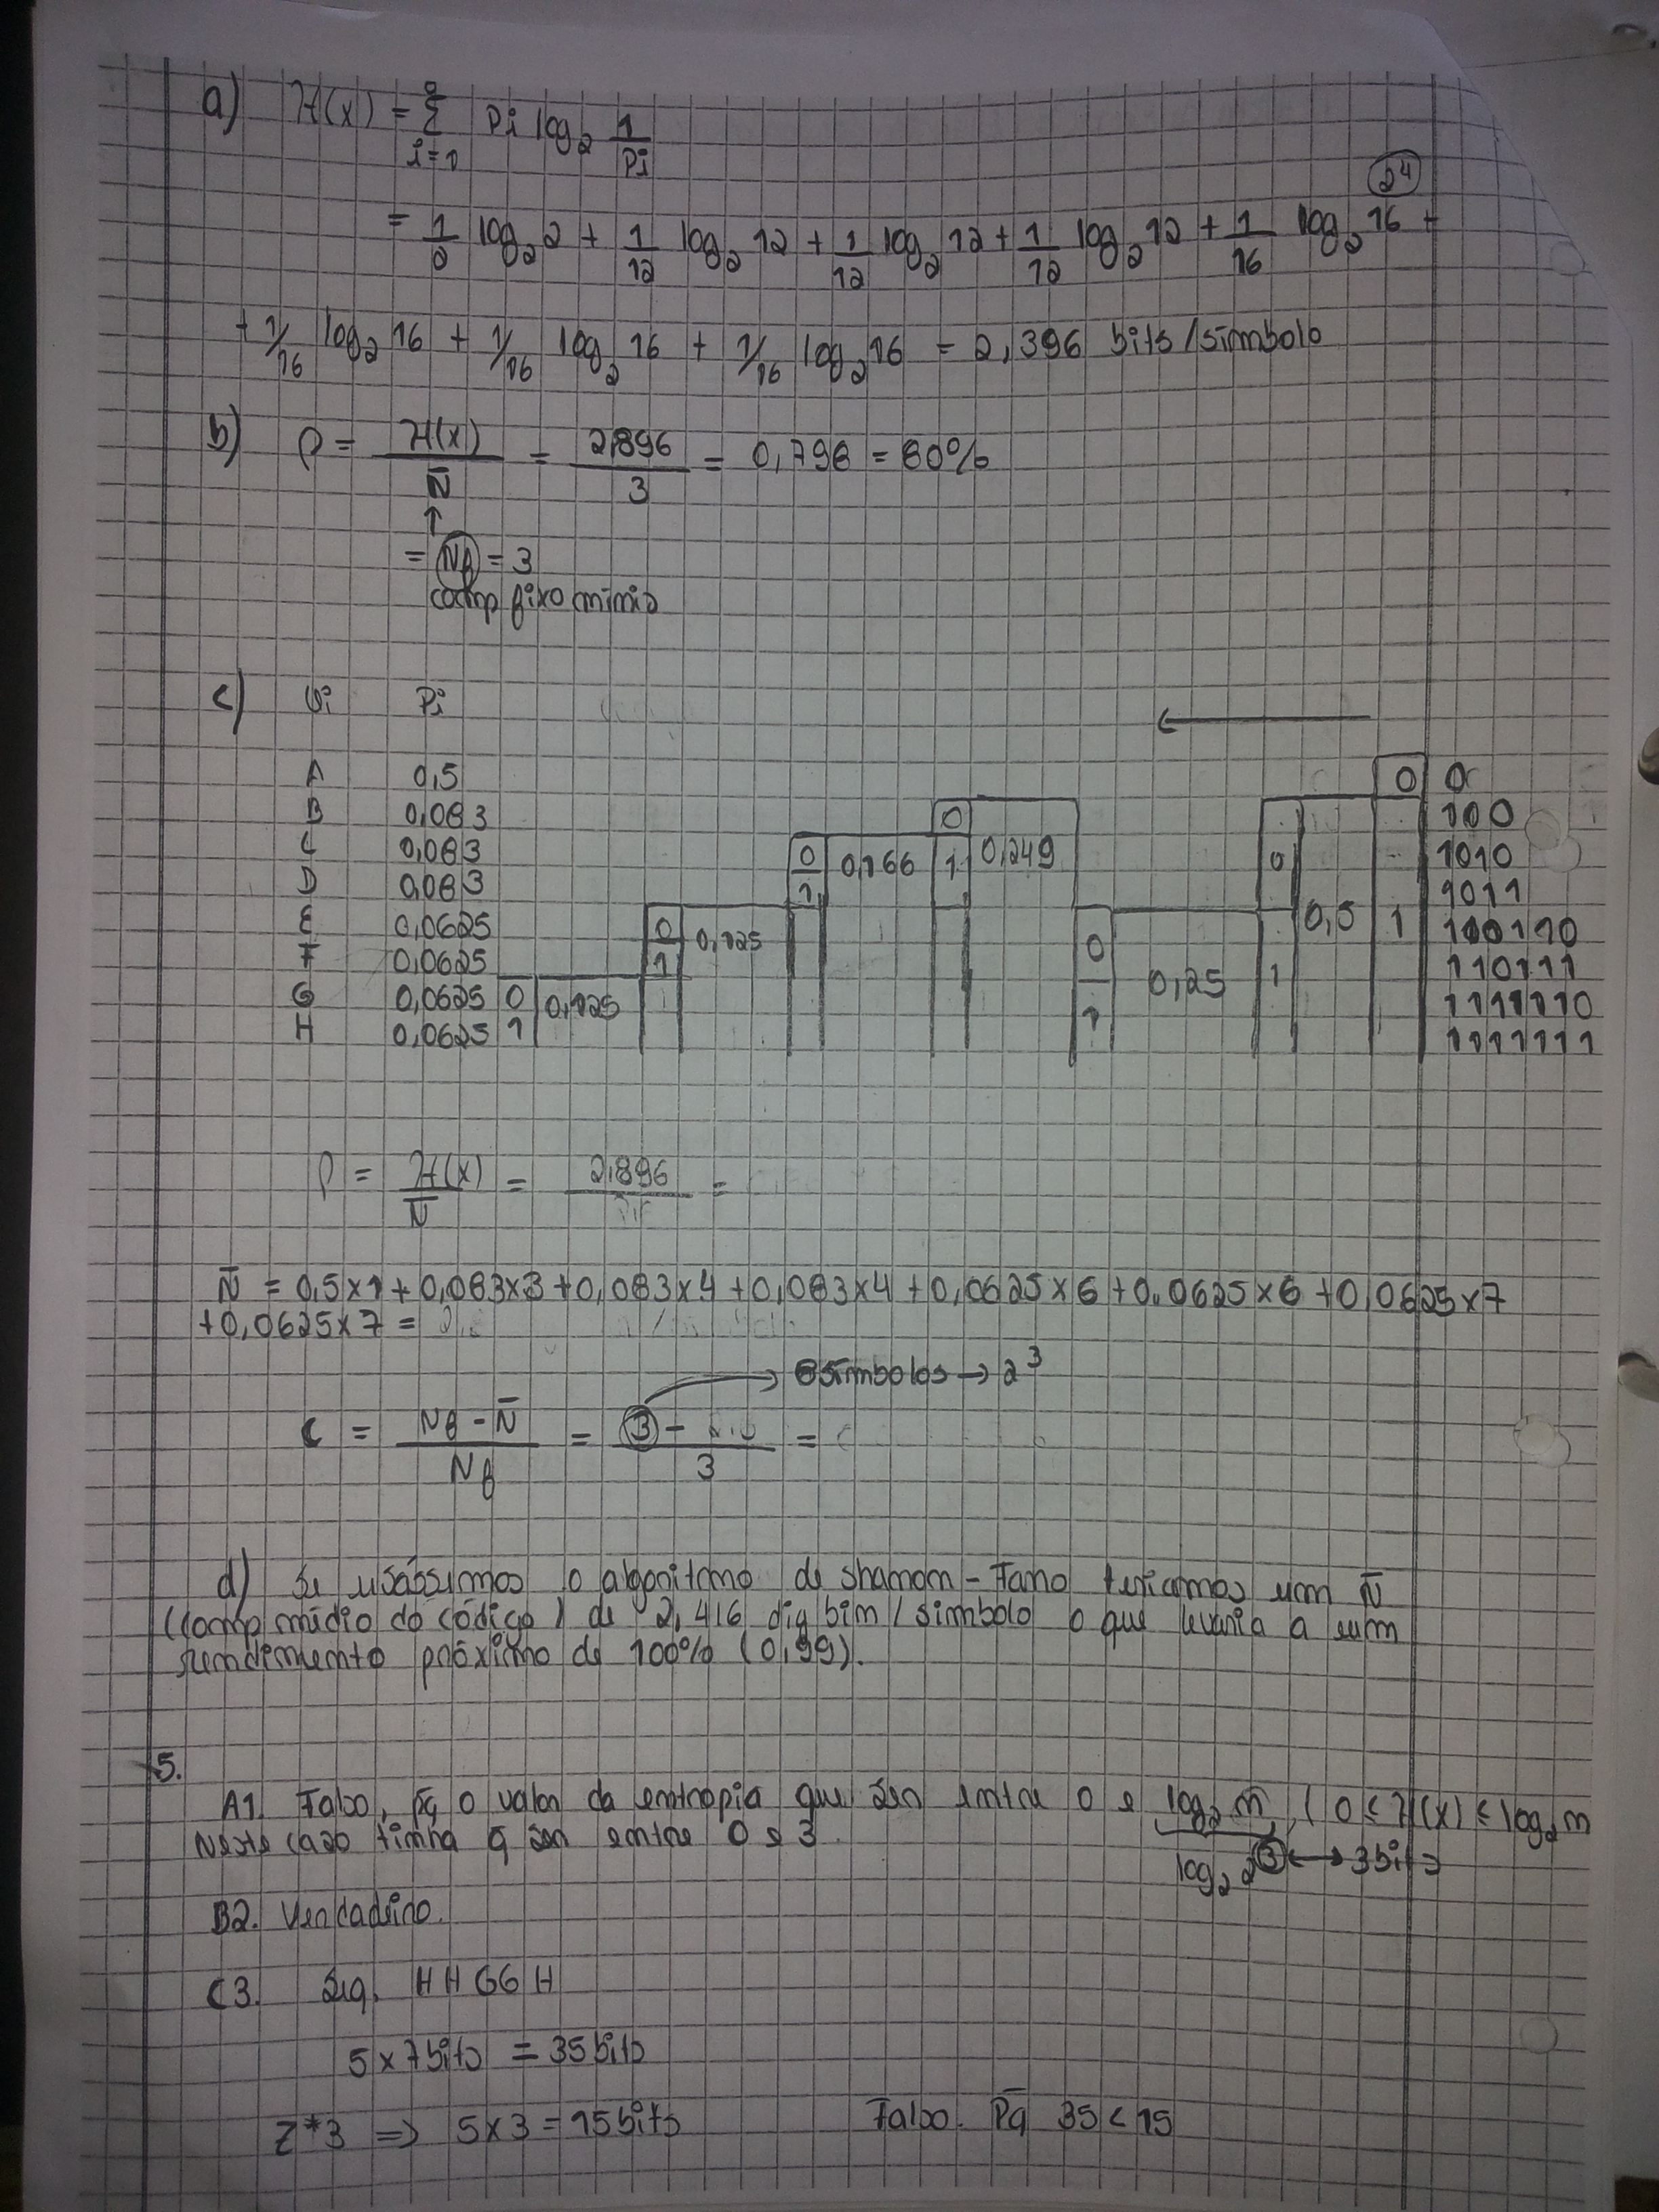 a) H(x) = Σ i=1 8 Pi log₂ 1/Pi
2⁴
= 1/2 log₂ 2 + 1/12 log₂ 12 + 1/12 log₂ 12 + 1/12 log₂ 12 + 1/16 log₂ 16 +
+ 1/16 log₂ 16 + 1/16 log₂ 16 + 1/16 log₂ 16 = 2,396 bits/simbolo
b) ρ = H(x)/N̄ = 2,396/3 = 0,798 = 80%
↑
= Nf = 3
comp fixo minimo
c) Pi
A 0,5 0 0
B 0,083 0 100
C 0,083 0 0,166 1 0,249 0 1010
D 0,083 1 1011
E 0,0625 0 0,125 0 0,5 1 110110
F 0,0625 1 110111
G 0,0625 0 0,125 0,25 1 1111110
H 0,0625 1 1 1111111
ρ = H(x)/N̄ = 2,396 =
N̄ = 0,5x1 + 0,083x3 + 0,083x4 + 0,083x4 + 0,0625x6 + 0,0625x6 + 0,0625x7
+0,0625x7 =
8 simbolos → 2³
C = Nf - N̄ / Nf = 3 - / 3 =
d) Se usássemos o algoritmo de shanon-Fano teriamos um N̄
(comp médio do código) de 2,416 dig bim/simbolo o que levaria a um
rendimento próximo de 100% (0,99).
5.
A1. Falso, pq o valor da entropia que ser entre 0 e log₂ m, (0 < H(x) < log₂ m
Neste caso tinha q ser entre 0 e 3.
log₂ 2³ ↔ 3 bits
B2. Verdadeiro.
C3. Seq. HHGGH
5 x 7 bits = 35 bits
Z*3 ⇒ 5x3 = 15 bits Falso. Pq 35 < 15